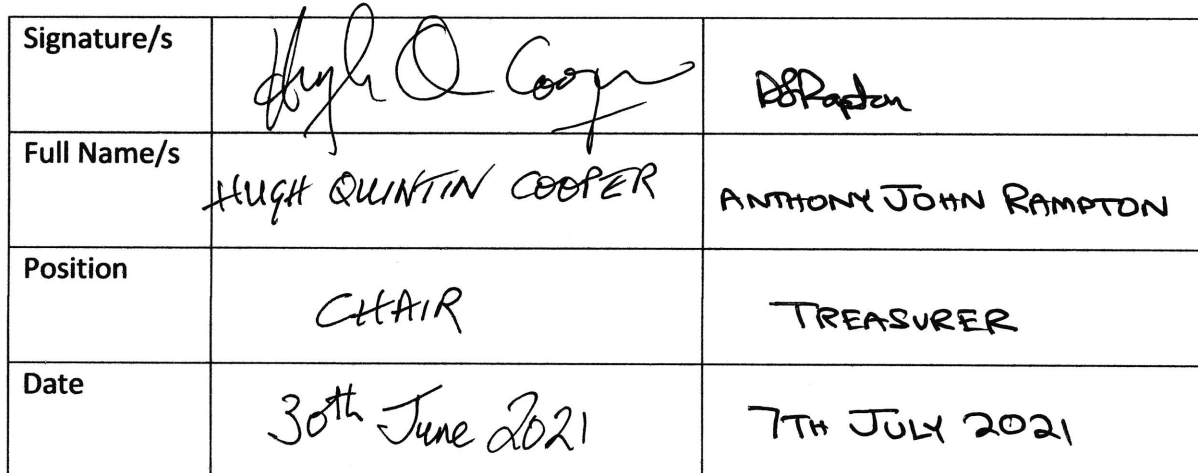 Signature/s Hugh Q Cooper AJRampton
Full Name/s HUGH QUINTIN COOPER ANTHONY JOHN RAMPTON
Position CHAIR TREASURER
Date 30th June 2021 7TH JULY 2021